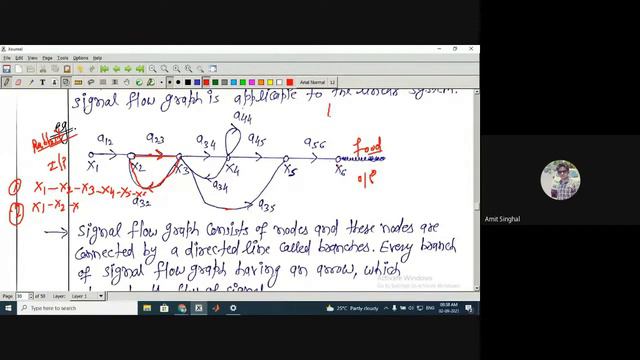 Xournal
File Edit View Page Tools Help
Arial Normal 12
signal flow graph is applicable to the linear system.
a44
a12 a23 a34 a45 a56
I/P
X1 X2 X3 X4 X5 X6
a32 a34 a35
O/P
① X1-X2-X3-X4-X5-X6
② X1-X2-X
→ Signal flow graph consists of nodes and these nodes are
connected by a directed line called branches. Every branch
of signal flow graph having an arrow, which
Activate Windows
Go to Settings to activate Windows.
Page 30 of 50 Layer Layer 1
Type here to search
25°C Partly cloudy
Amit Singhal